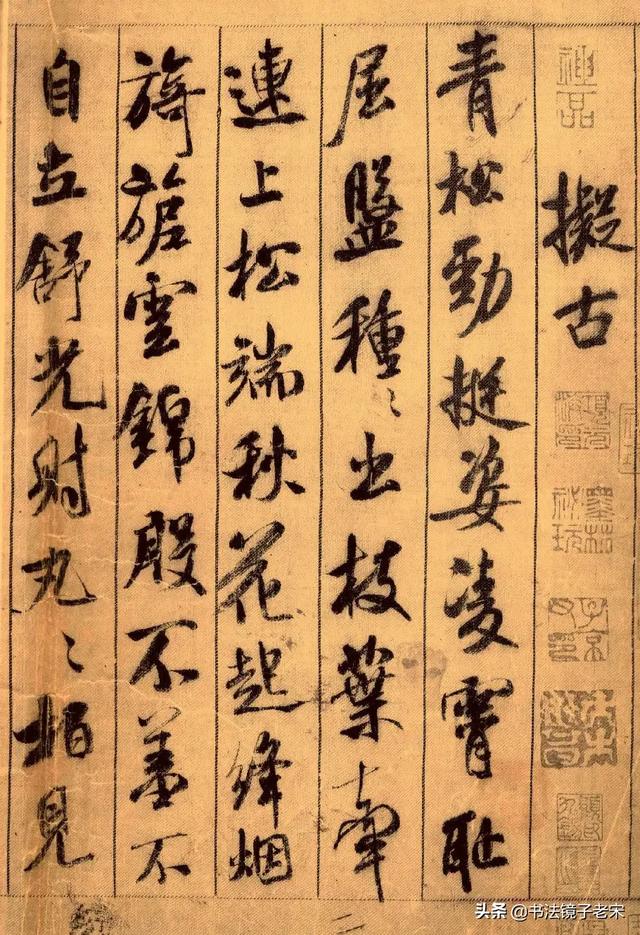 擬古
青松勁挺姿凌霄耻
屈盤種〻出枝葉牽
連上松端秋花起絳烟
旖旎雲錦殷不羞不
自立舒光射丸〻柏見
头条 @书法镜子老宋